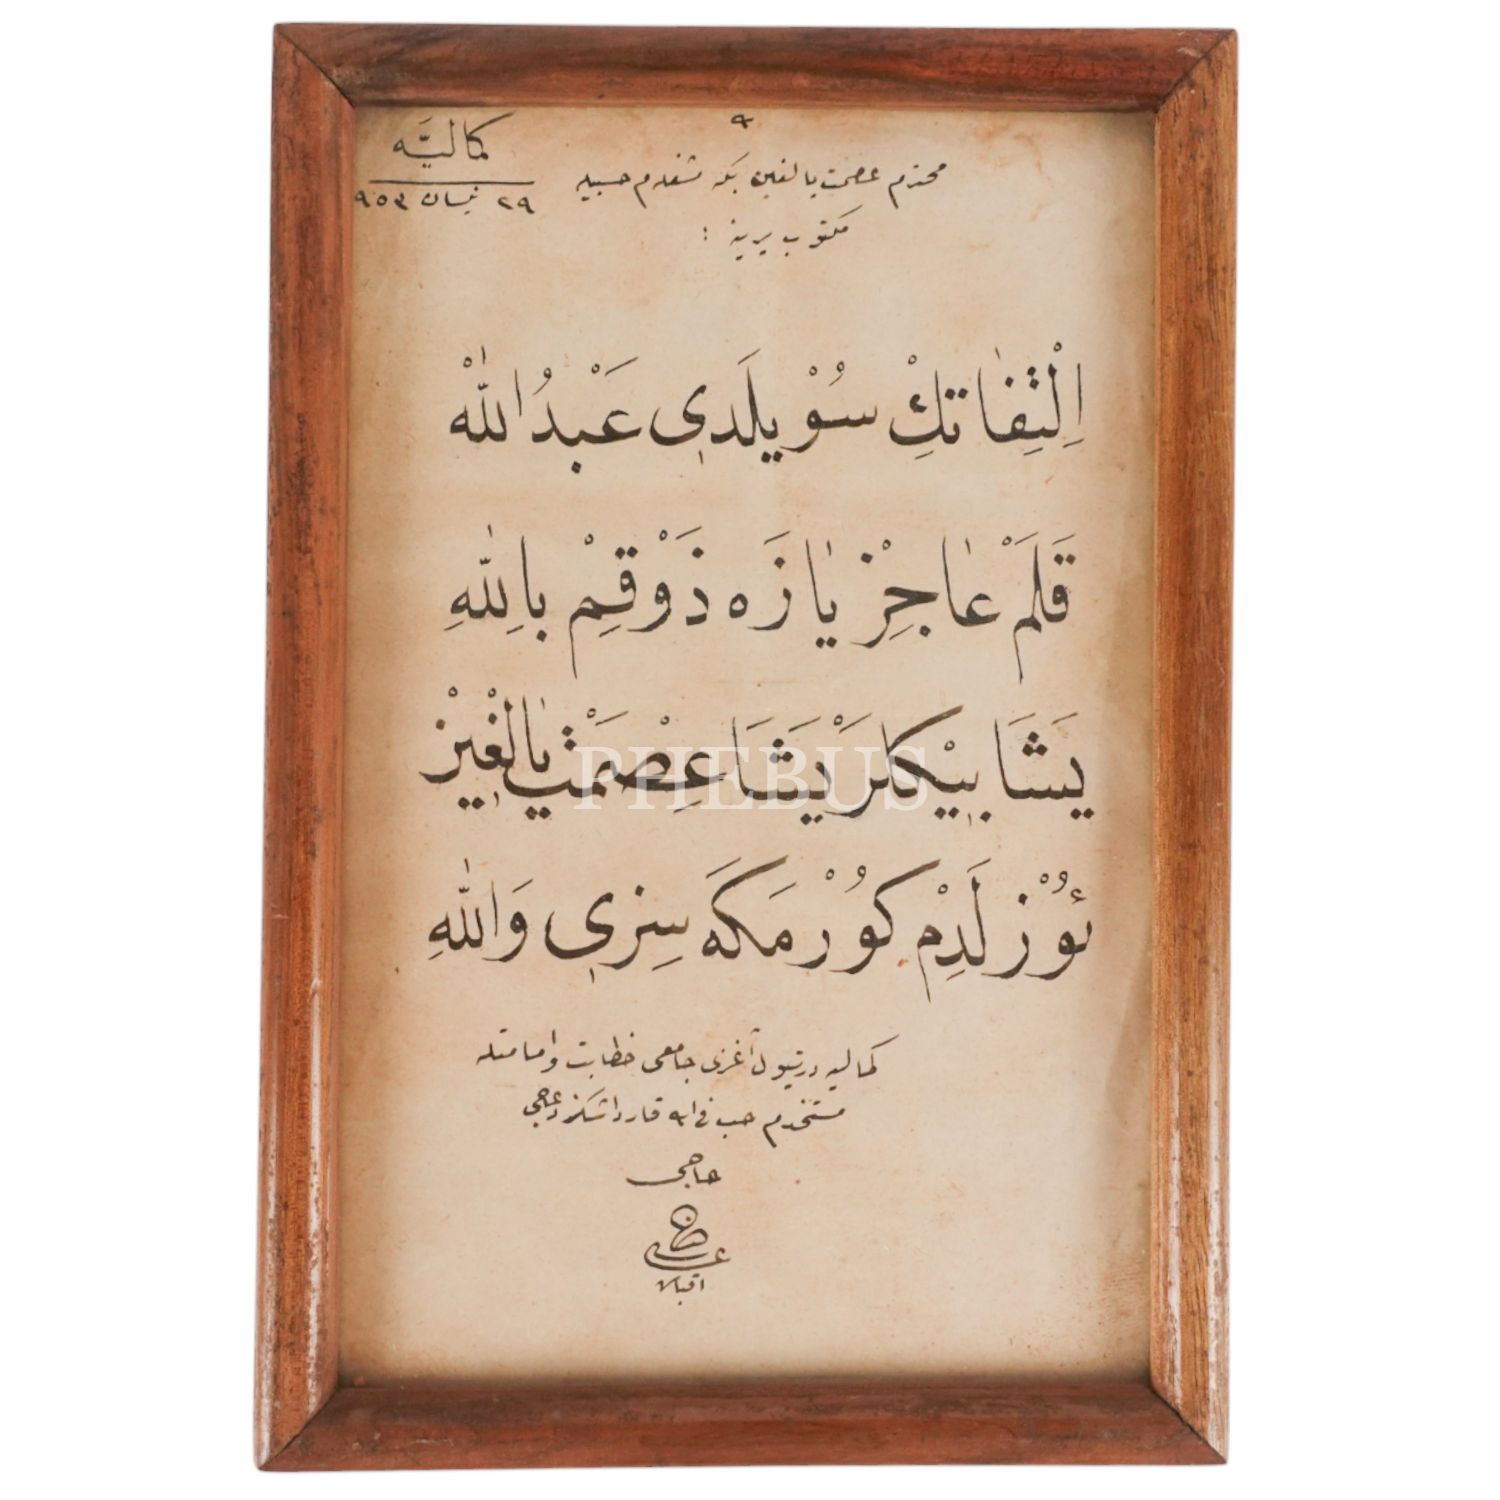 ٩
كماليَّه
٢٩ نيسان ٩٥٣
محترم عصمت يالغين بكه تشكرم حسبيله
مكتوب يرينه :
اِلْتِفٰاتكِْ سُوْيلَدى عَبْدُاللّٰهْ
قَلَمْ عٰاجِزْ يٰازَه ذَوْقِمْ بِاللّٰهِ
يَشَا بيْكلَرْ يَشَا عِصْمَتْ يٰالْغيْن
ئوُزْلَدِمْ كوُرْمَكَه سِزى وَاللّٰهِ
كماليه درتيول آغزى جامعى خطابت وامامتله
مستخدم
حاجى
PHEBUS